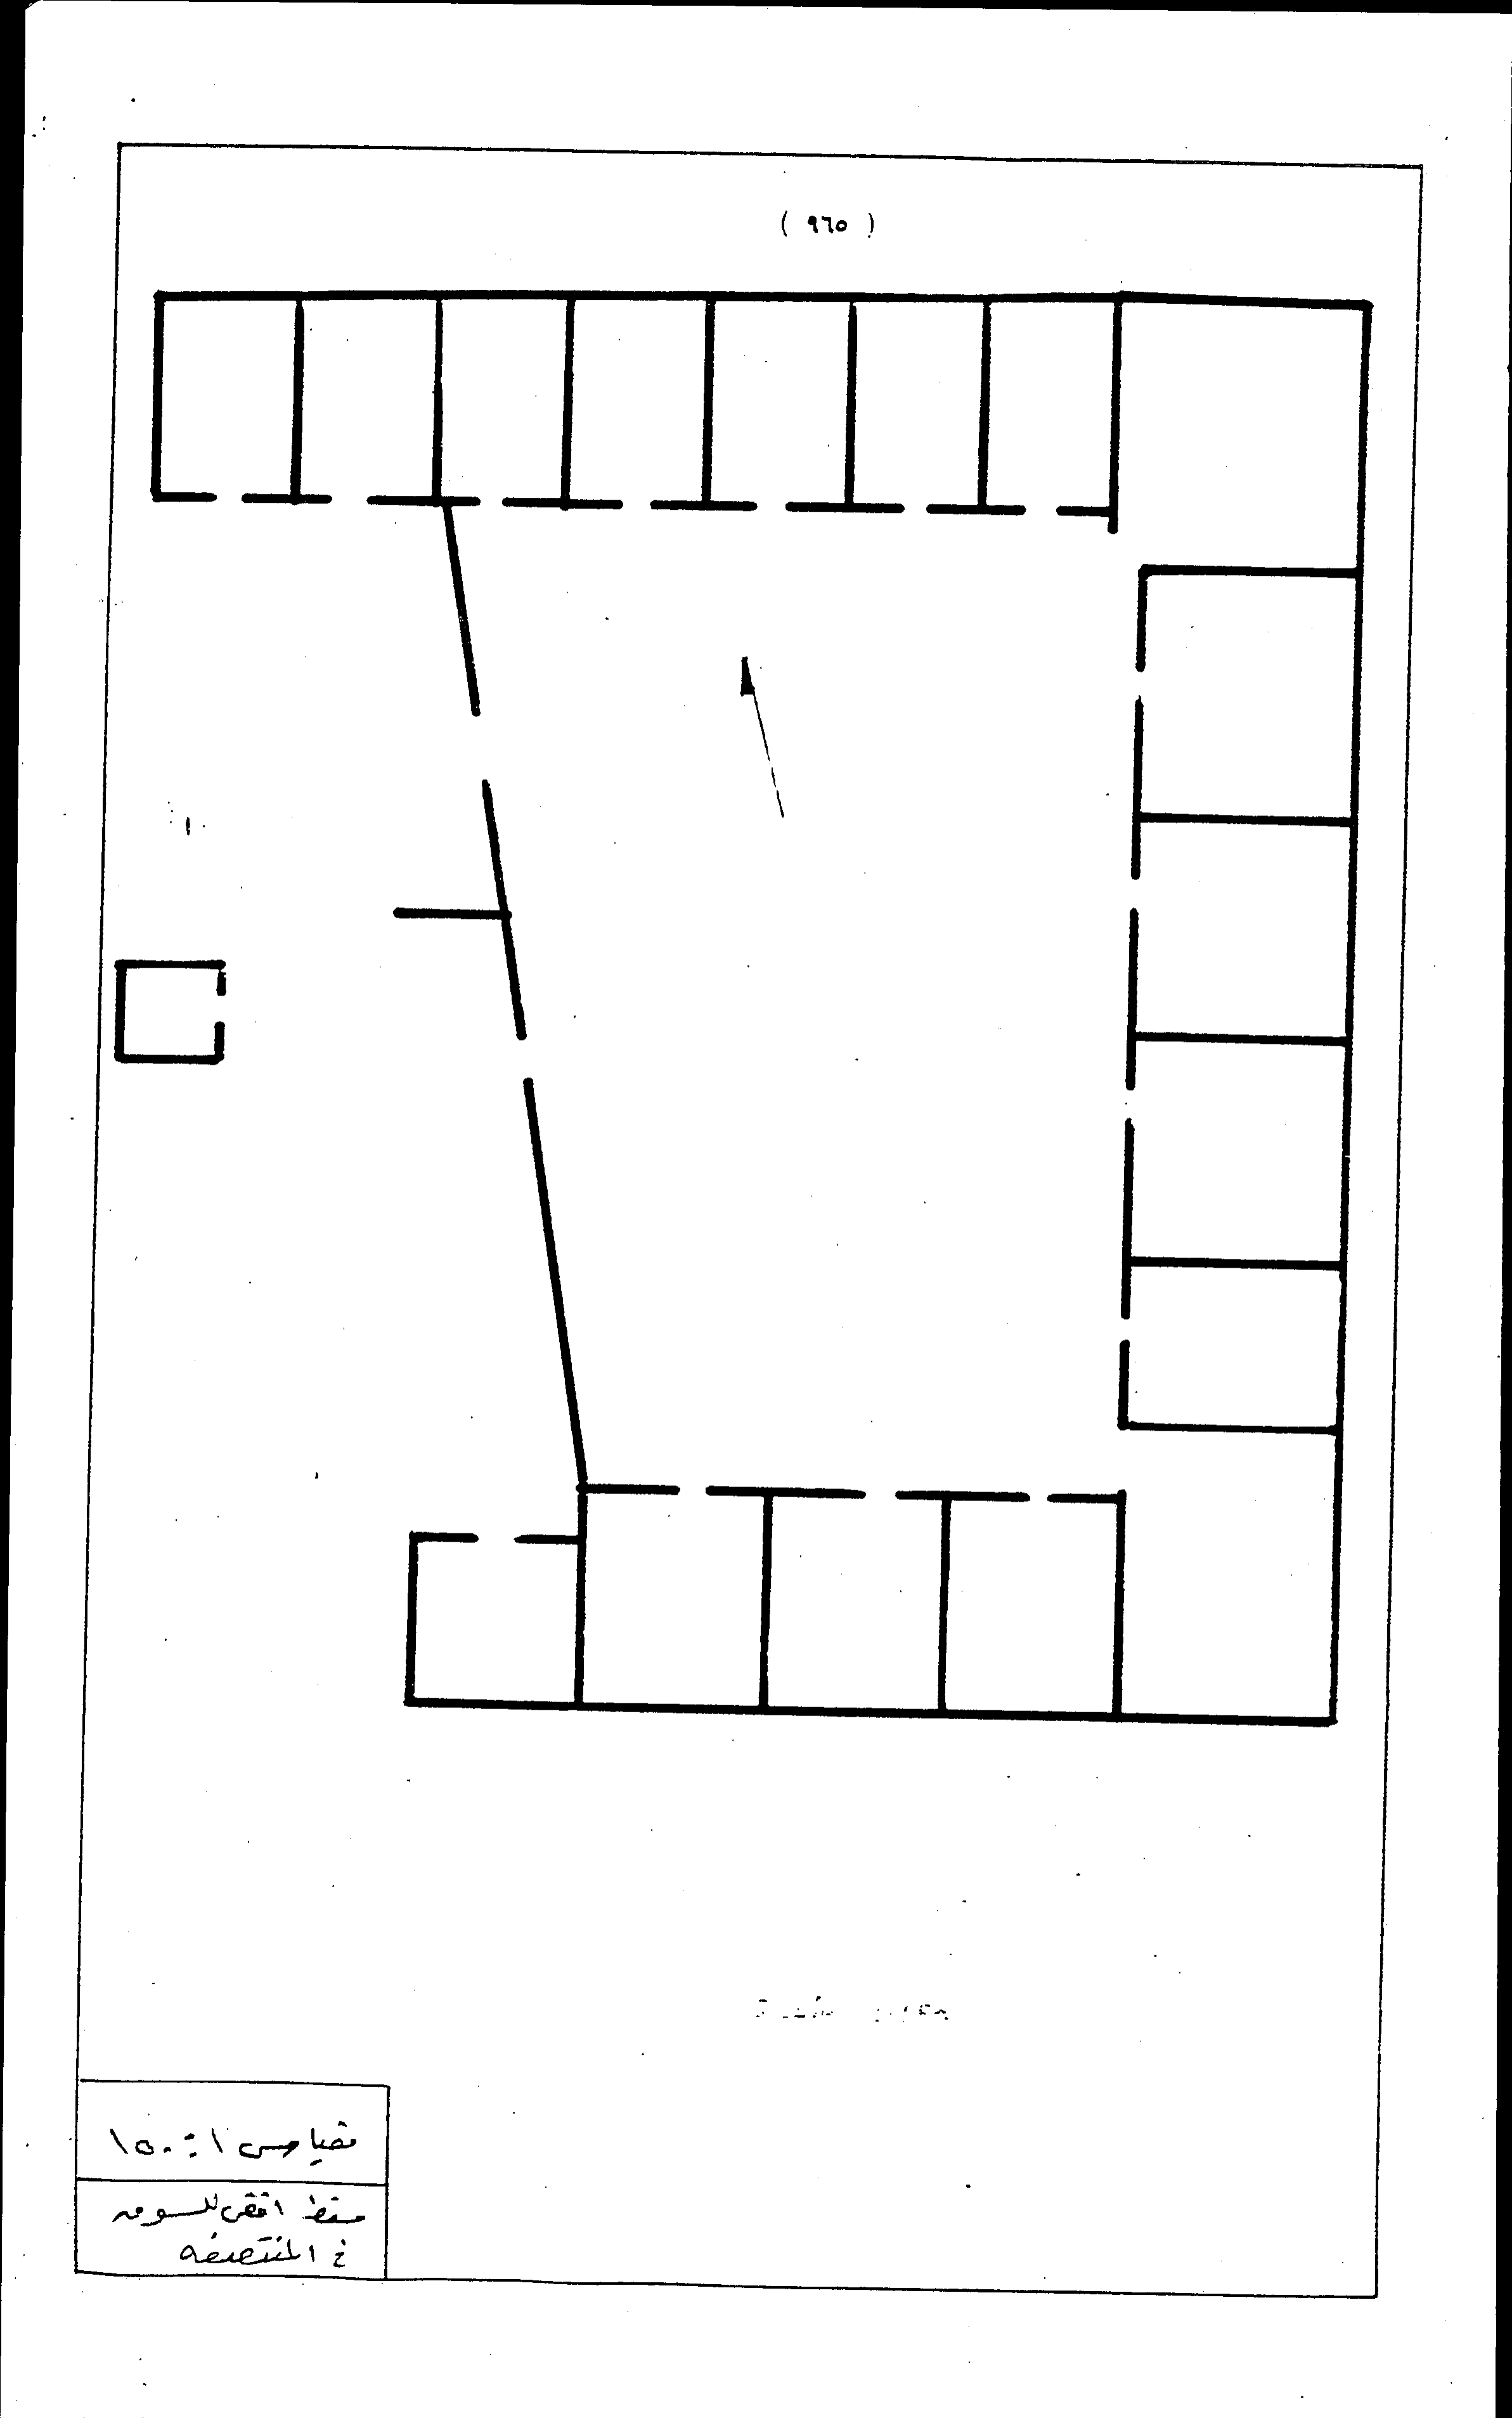 ( ٩٦٥ )
مقياس ١ : ١٥٠
مسقط افقى للسوق
فى المنتصفه